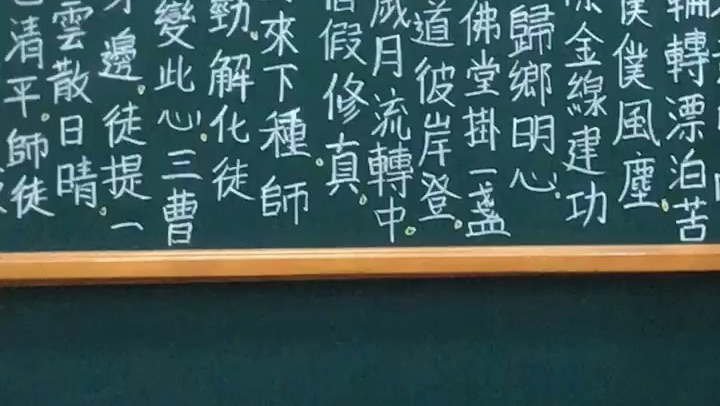 輪轉漂泊苦
僕僕風塵
金線建功
歸鄉明心
佛堂掛一盞
道彼岸登
歲月流轉中
假修真
來下種師
勁解化徒
變此心三曹
邊徒提一
雲散日晴
清平師徒